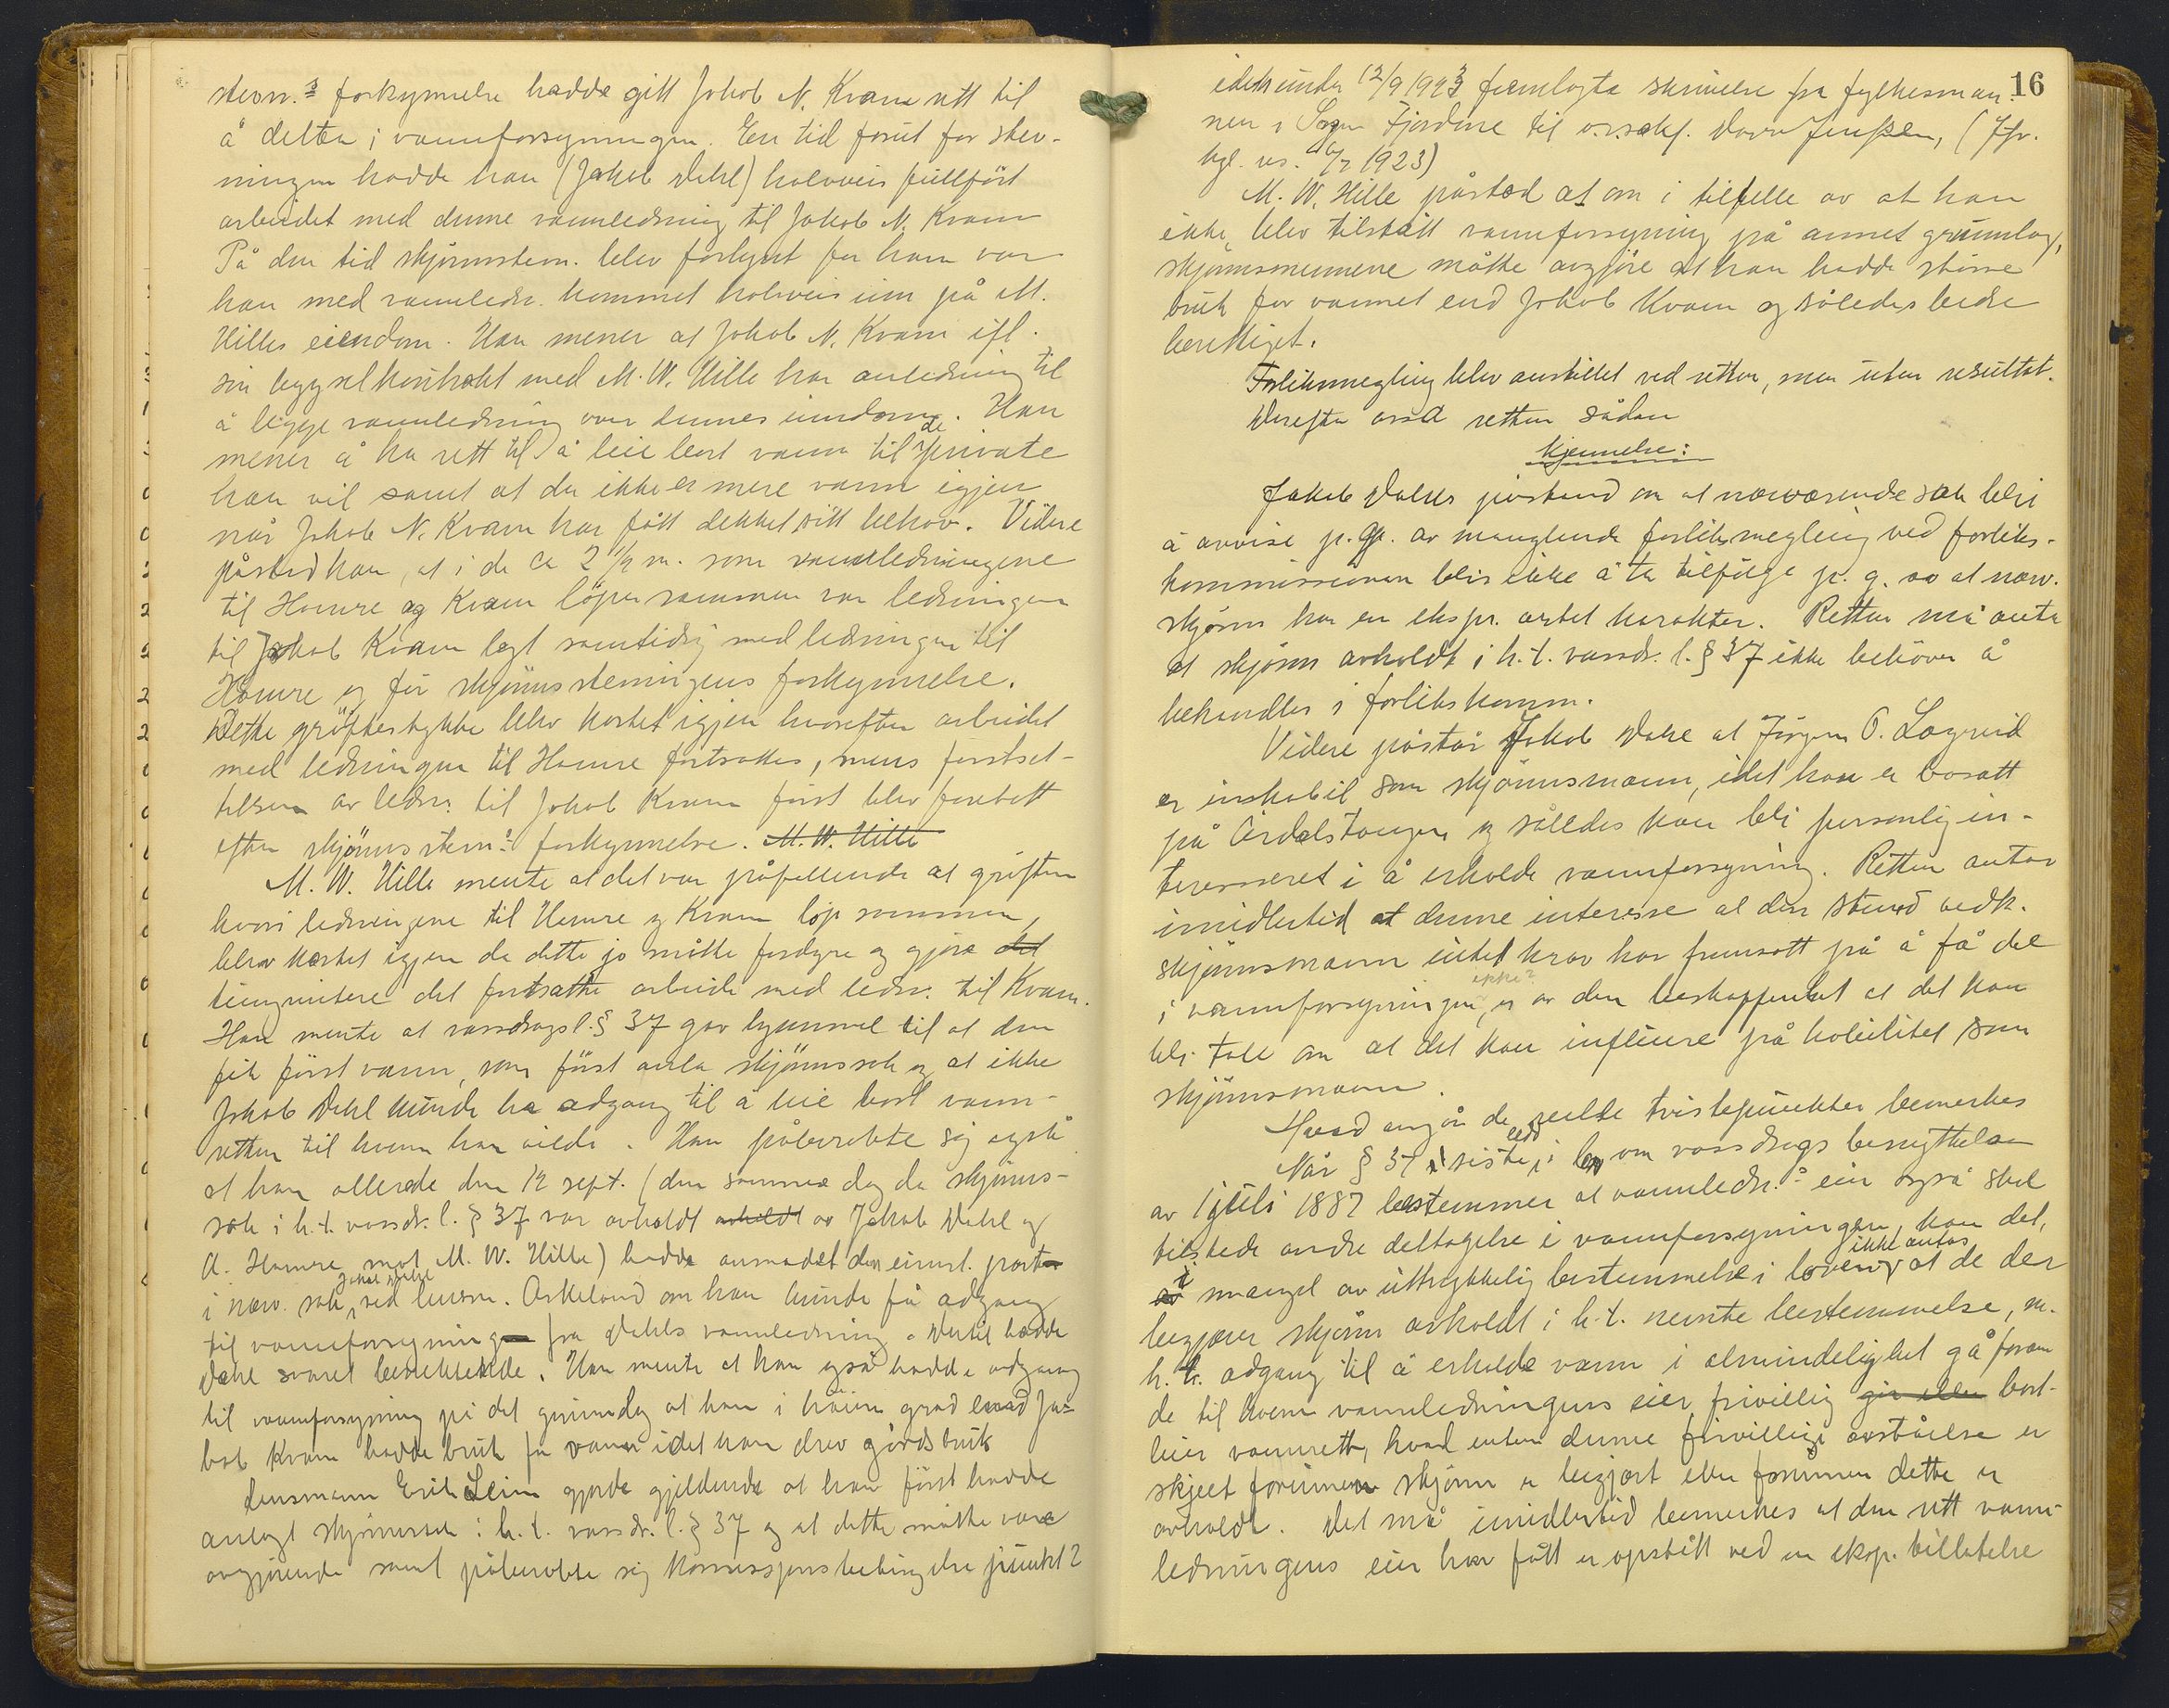 stevn.s forkynnelse hadde gitt Jakob N. Kvam rett til
å delta i vannforsyningen. En tid forut for stev-
ningen hadde han (Jakob Dahl) halvveis fullført
arbeidet med denne vannledning til Jakob N. Kvam
På den tid skjønnstevn. blev forkynt for ham var
han med vannledn. kommet halvveis inn på M.
Hilles eiendom. Han mener at Jakob N. Kvam ifl.
sin bygselkontrakt med M. W. Hille har anledning til
å legge vannledning over dennes eiendom. Han
mener å ha rett til å leie bort vann til de private
han vil samt at der ikke er mere vann igjen
når Jakob N. Kvam har fått dekket sitt behov. Videre
påstod han, at i de ca 2 1/2 m. som vannledningene
til Hamre og Kvam løper sammen var ledningen
til Jakob Kvam lagt samtidig med ledningen til
Hamre og før skjønnsstevningens forkynnelse.
Dette grøftestykke blev kastet igjen hvorefter arbeidet
med ledningen til Hamre fortsattes, mens fortset-
telsen av ledn. til Jakob Kvam først blev foretatt
efter skjønnsstevn.s forkynnelse. M. W. Hille
M. W. Hille mente at det var påfallende at grøften
hvori ledningene til Hamre og Kvam løp sammen,
blev kastet igjen da dette jo måtte fordyre og gjøre det
tungvintere det fortsatte arbeide med ledn. til Kvam.
Han mente at vassdragsl. § 37 gav hjemmel til at den
fik først vann, som først anla skjønnssak og at ikke
Jakob Dahl kunde ha adgang til å leie bort vann-
retten til hvem han vilde. Han påberobte sig også
at han allerede den 12 sept. (den samme dag da skjønns-
sak i h. t. vassdr. l. § 37 var avholdt avholdt av Jakob Dahl og
A. Hamre mot M. W. Hille) hadde anmodet den einst. part
i nærv. sak, Jakob Dahl ved lensm. Askeland om han kunde få adgang
til vannforsyning fra Dahls vannledning. Dertil hadde
Dahl svaret benektende. Han mente at han også hadde adgang
til vannforsyning på det grunnlag at han i høiere grad enn Ja-
kob Kvam hadde bruk for vann idet han drev gårdsbruk
Lensmann Erik Leim gjorde gjeldende at han først hadde
anlagt skjønnssak i h. t. vassdr. l. § 37 og at dette måtte være
avgjørende samt påberobte sig konsesjonsbetingelse punkt 2
16
idet under 12/9 1923 fremlagte skrivelse fra fylkesman-
nen i Sogn Fjordane til o.r.sakf. (Jfr.
kgl. res. 1923)
M. W. Hille påstod at om i tilfelle av at han
ikke blev tilstått vannforsyning på annet grunnlag,
skjønnsmennene måtte avgjøre at han hadde større
bruk for vannet end Jakob Kvam og således bedre
berettiget.
Forliksmegling blev anstillet ved retten, men uten resultat.
Derefter avsa retten sådan
Kjennelse:
Jakob Dahls påstand om at nærværende sak blir
å avvise p. gr. av manglende forliksmegling ved forliks-
kommissionen blir ikke å ta tilfølge p. g. av at nærv.
skjønn har en ekspr. artet karakter. Retten må anta
at skjønn avholdt i h. t. vassdr. l. § 37 ikke behøver å
behandles i forlikskomm.
Videre påstår Jakob Dahl at Jørgen O. Lægreid
er inhabil som skjønnsmann, idet han er bosatt
på Årdalstangen og således kan bli personlig in-
teressert i å erholde vannforsyning. Retten antar
imidlertid at denne interesse al den stund vedk.
skjønnsmann intet krav har fremsatt på å få del
i vannforsyningen, ikke? er av den beskaffenhet at det kan
bli tale om at det kan influere på habilitet som
skjønnsmann.
Hvad angår de reelle tvistepunkter bemerkes
Når § 37 siste ledd i lov om vassdrags benyttelse
av 1 juli 1887 bestemmer at vannledn.s eier også skal
tilstede andre deltagelse i vannforsyningen, kan det,
i mangel av uttrykkelig bestemmelse i loven, ikke antas at de der
begjærer skjønn avholdt i h. t. nevnte bestemmelse, m.
h. t. adgang til å erholde vann i almindelighet gå foran
de til hvem vannledningens eier frivillig gir eller bort-
leier vannrett, hvad enten denne frivillige avståelse er
skjeet forinnen skjønn er begjært eller forinnen dette er
avholdt. Det må imidlertid bemerkes at den rett vann-
ledningens eier har fått er opstått ved en eksp. tillatelse